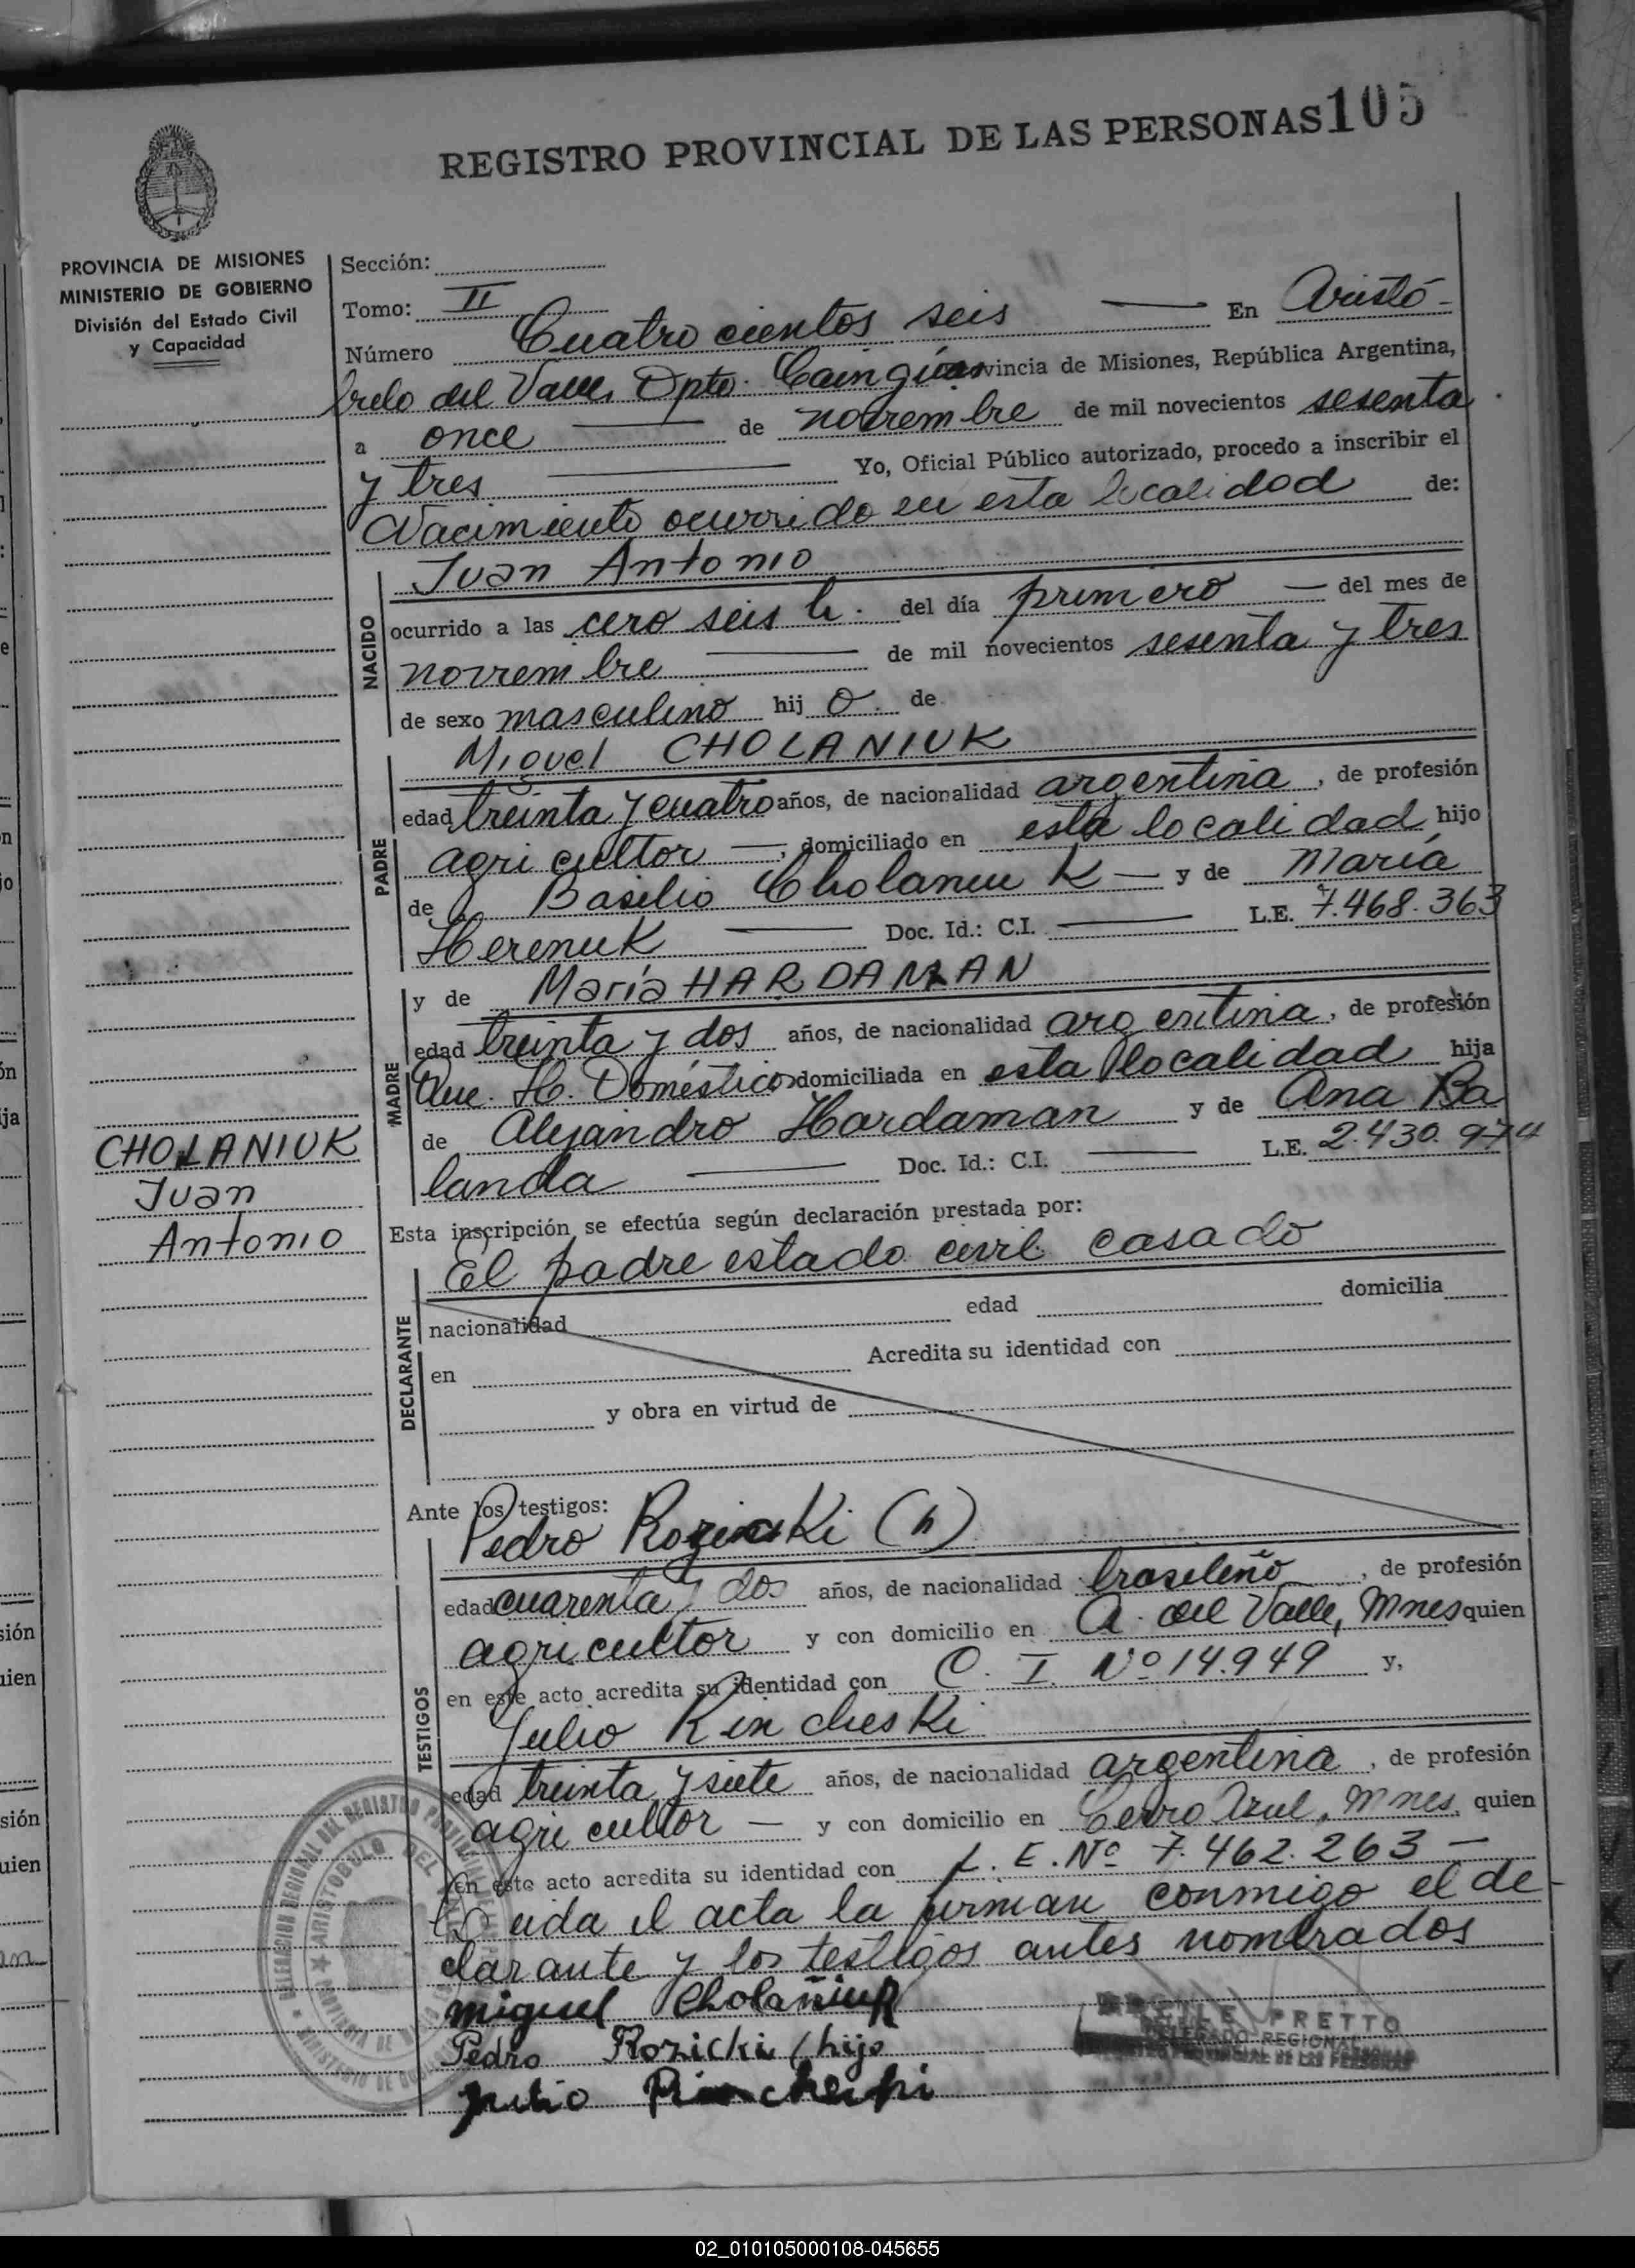 REGISTRO PROVINCIAL DE LAS PERSONAS 105
PROVINCIA DE MISIONES
MINISTERIO DE GOBIERNO
División del Estado Civil
y Capacidad
Sección:
Tomo: II
Número Cuatrocientos seis — En Aristó-
bulo del Valle, Dpto. Cainguás Provincia de Misiones, República Argentina,
a once — de noviembre de mil novecientos sesenta
y tres — Yo, Oficial Público autorizado, procedo a inscribir el
Nacimiento ocurrido en esta localidad de:
NACIDO
Juan Antonio
ocurrido a las cero seis h. del día primero — del mes de
noviembre — de mil novecientos sesenta y tres
de sexo masculino hijo de
PADRE
Miguel CHOLANIUK
edad treinta y cuatro años, de nacionalidad argentina, de profesión
agricultor —, domiciliado en esta localidad hijo
de Basilio Cholaniuk — y de María
Herenuk — Doc. Id.: C.I. — L.E. 7.468.363
MADRE
y de María HARDAMAN
edad treinta y dos años, de nacionalidad argentina, de profesión
Que. H. Domésticos domiciliada en esta localidad hija
de Alejandro Hardaman y de Ana Ba
landa — Doc. Id.: C.I. — L.E. 2.430.974
CHOLANIUK
Juan
Antonio
Esta inscripción se efectúa según declaración prestada por:
DECLARANTE
El padre estado civil casado
nacionalidad edad domicilia
en Acredita su identidad con
y obra en virtud de
Ante los testigos:
TESTIGOS
Pedro Rozicki (h)
edad cuarenta y dos años, de nacionalidad brasileño, de profesión
agricultor y con domicilio en A. del Valle, Mnes quien
en este acto acredita su identidad con C. I. Nº 14.949 y,
Julio Kincheski
edad treinta y siete años, de nacionalidad argentina, de profesión
agricultor — y con domicilio en Cerro Azul, Mnes. quien
en este acto acredita su identidad con L. E. Nº 7.462.263 —
Leida el acta la firman conmigo el de-
clarante y los testigos antes nombrados
miguel Cholaniuk
Pedro Rozicki / hijo
Julio
PRETTO
DELEGADO REGIONAL
REGISTRO PROVINCIAL DE LAS PERSONAS
DELEGACION REGIONAL DEL REGISTRO PROVINCIAL
ARISTOBULO DEL VALLE
PROVINCIA DE
MINISTERIO DE GOBIERNO
02_010105000108-045655